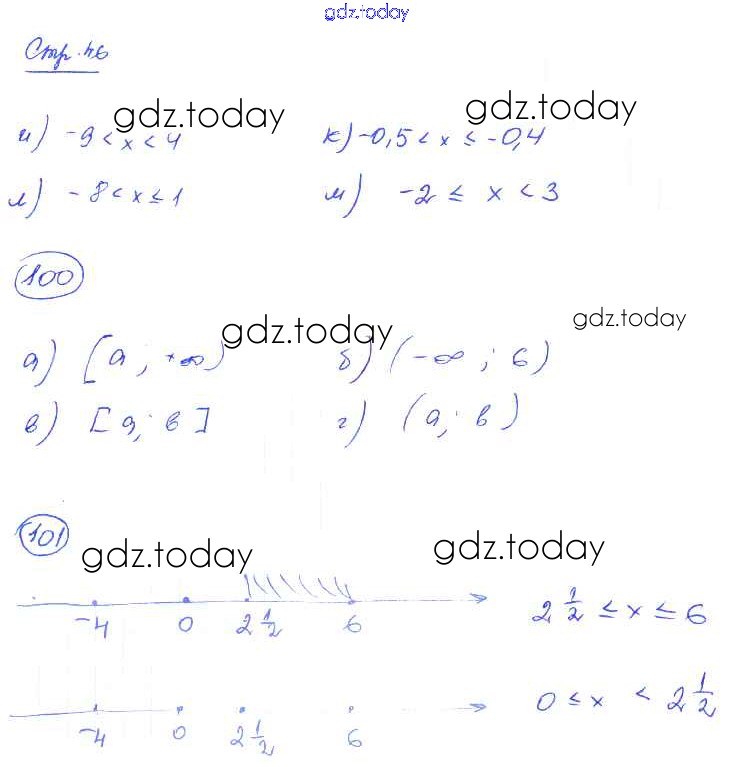 gdz.today
Стр. 46
и) -9 < x < 4 к) -0,5 < x ≤ -0,4
gdz.today gdz.today
л) -8 < x ≤ 1 м) -2 ≤ x < 3
100
gdz.today gdz.today
а) [a; +∞) б) (-∞; б)
в) [a; в] г) (a; в)
101
gdz.today gdz.today
-4 0 2 1/2 6 2 1/2 ≤ x ≤ 6
-4 0 2 1/2 6 0 ≤ x < 2 1/2